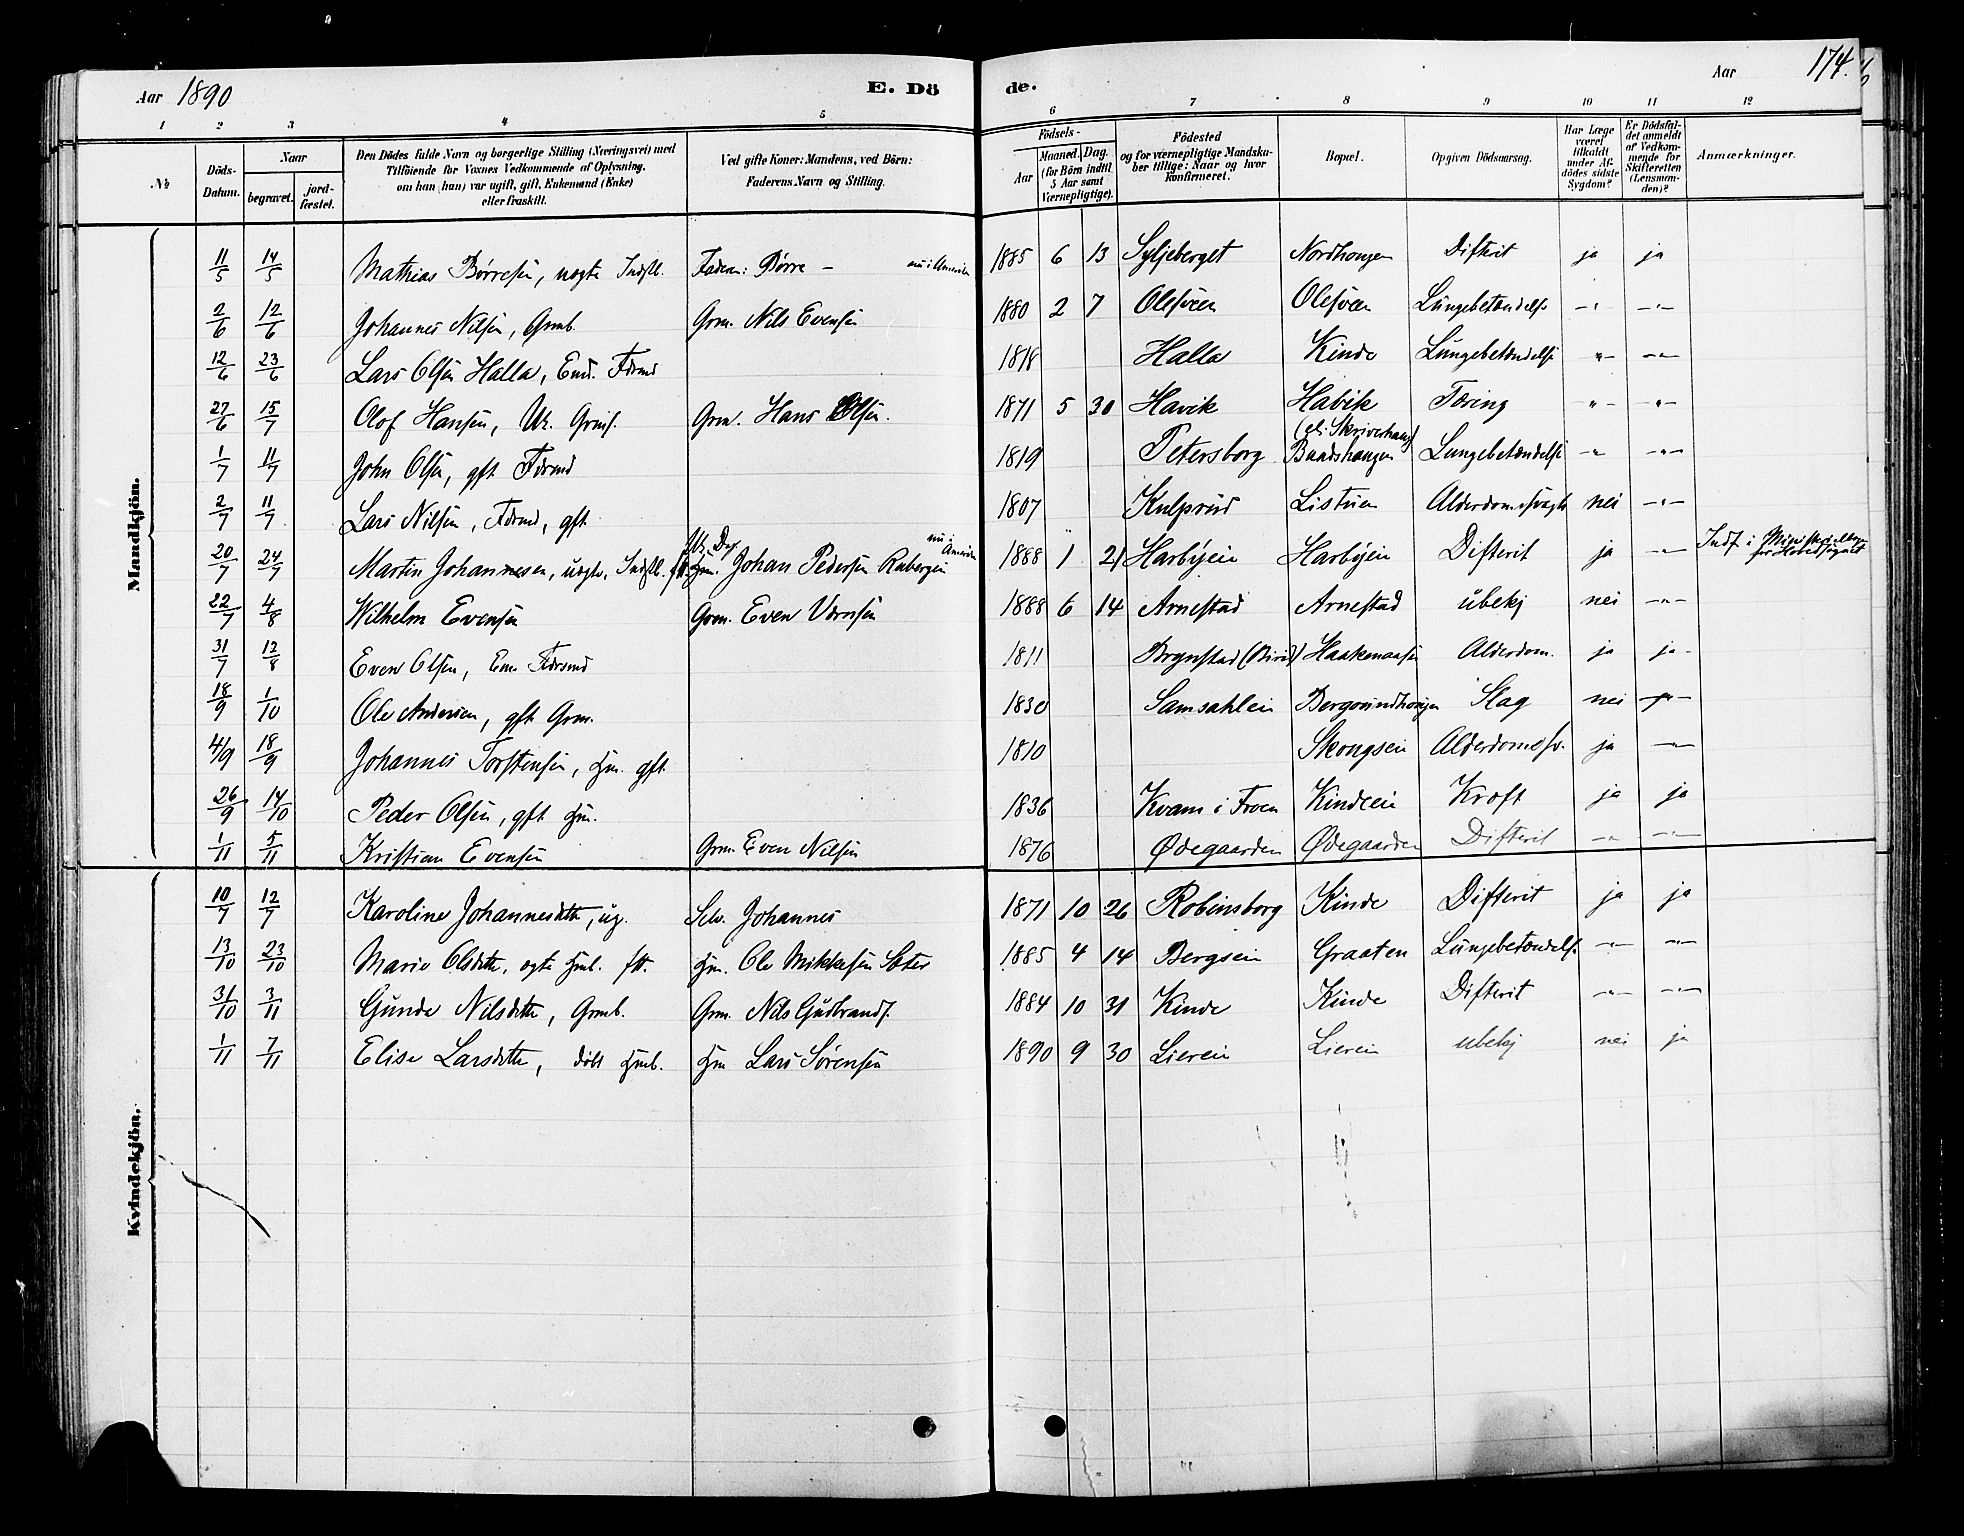 Aar 1890 E. Dö de. Aar 174.
1 2 3 4 5 6 7 8 9 10 11 12
№ Döds-Datum. Naar begravet. jord-fæstet. Den Dödes fulde Navn og borgerlige Stilling (Næringsvei) med Tilföiende for Voxnes Vedkommende af Oplysning, om han (hun) var ugift, gift, Enkemand (Enke) eller fraskilt. Ved gifte Koner: Mandens, ved Börn: Faderens Navn og Stilling. Födsels- Aar Maaned. Dag. (for Börn indtil 5 Aar samt Værnepligtige). Födested og for værnepligtige Mandska-ber tillige: Naar og hvor konfirmeret. Bopæl. Opgiven Dödsaarsag. Har Læge været tilkaldt under Af-dödes sidste Sygdom? Er Dödsfal-det anmeldt af Vedkom-mende for Skifteretten (Lensman-den)? Anmærkninger.
Mandkjön.
11/5 14/5 Mathias Børresen, uægte Indstl. Faderen: Børre – nu i Amerika 1885 6 13 Syljeberget Nordhougen Difterit ja ja
2/6 12/6 Johannes Nilsen, Grmb. Grm. Nils Evensen 1880 2 7 Olesveen Olesveen Lungebetændelse -"- -"-
12/6 23/6 Lars Olsen Halla, Enk. Fdrmd 1818 Halla Kinde Lungebetændelse -"- -"-
27/6 15/7 Olof Hansen, Uz. Grms. Grm. Hans Olsen. 1871 5 30 Havik Havik Tæring -"- -"-
1/7 11/7 John Olsen, gft. Fdrmd 1819 Petersborg Baadshaugen Lungebetændelse -"- -"-
2/7 11/7 Lars Nilsen, Fdrmd, gft. 1807 Kulpsrud Listuen Alderdomssvagh. nei -"-
20/7 24/7 Martin Johannesen, uægte, Indstl. Johan Pedersen nu i Amerika 1888 1 21 Harbyein Harbyein Difterit ja -"- Indf. i
22/7 4/8 Wilhelm Evensen Grm. Even 1888 6 14 Arnestad Arnestad ubekj nei -"-
31/7 12/8 Even Olsen, Enk. Fdrmd 1811 Brynstad (Birid) Haakenaasen Alderdom. ja ja
18/9 1/10 Ole Andersen, gft. Grm. 1830 Samsahlein Bergsundhougen Slag nei -"-
4/9 18/9 Johannes Torstensen, Hm. gft. 1810 Skougsein Alderdomssv. ja -"-
26/9 14/10 Peder Olsen, gft. Hm. 1836 Kvam i Froen Kindeeie Kræft ja ja
1/11 5/11 Kristian Evensen Grm. Even Nilsen 1876 Ødegaarden Ødegaarden Difterit -"- -"-
Kvindekjön.
10/7 12/7 Karoline Johannesdtr., ug. Selv. Johannes 1871 10 26 Robinsborg Kinde Difterit ja ja
13/10 23/10 Marie Olsdtr., ægte Hmb. ft. Hm. Ole Mikkelsen Sæter 1885 4 14 Bergsein Graaten Lungebetændelse -"- -"-
31/10 3/11 Gunde Nilsdtr, Grmb. Grm. Nils Gudbrands. 1884 10 31 Kinde Kinde Difterit -"- -"-
1/11 7/11 Elise Larsdtr, døbt Hmb. Hm Lars Sørensen 1890 9 30 Lierein Lierein ubekj nei ja